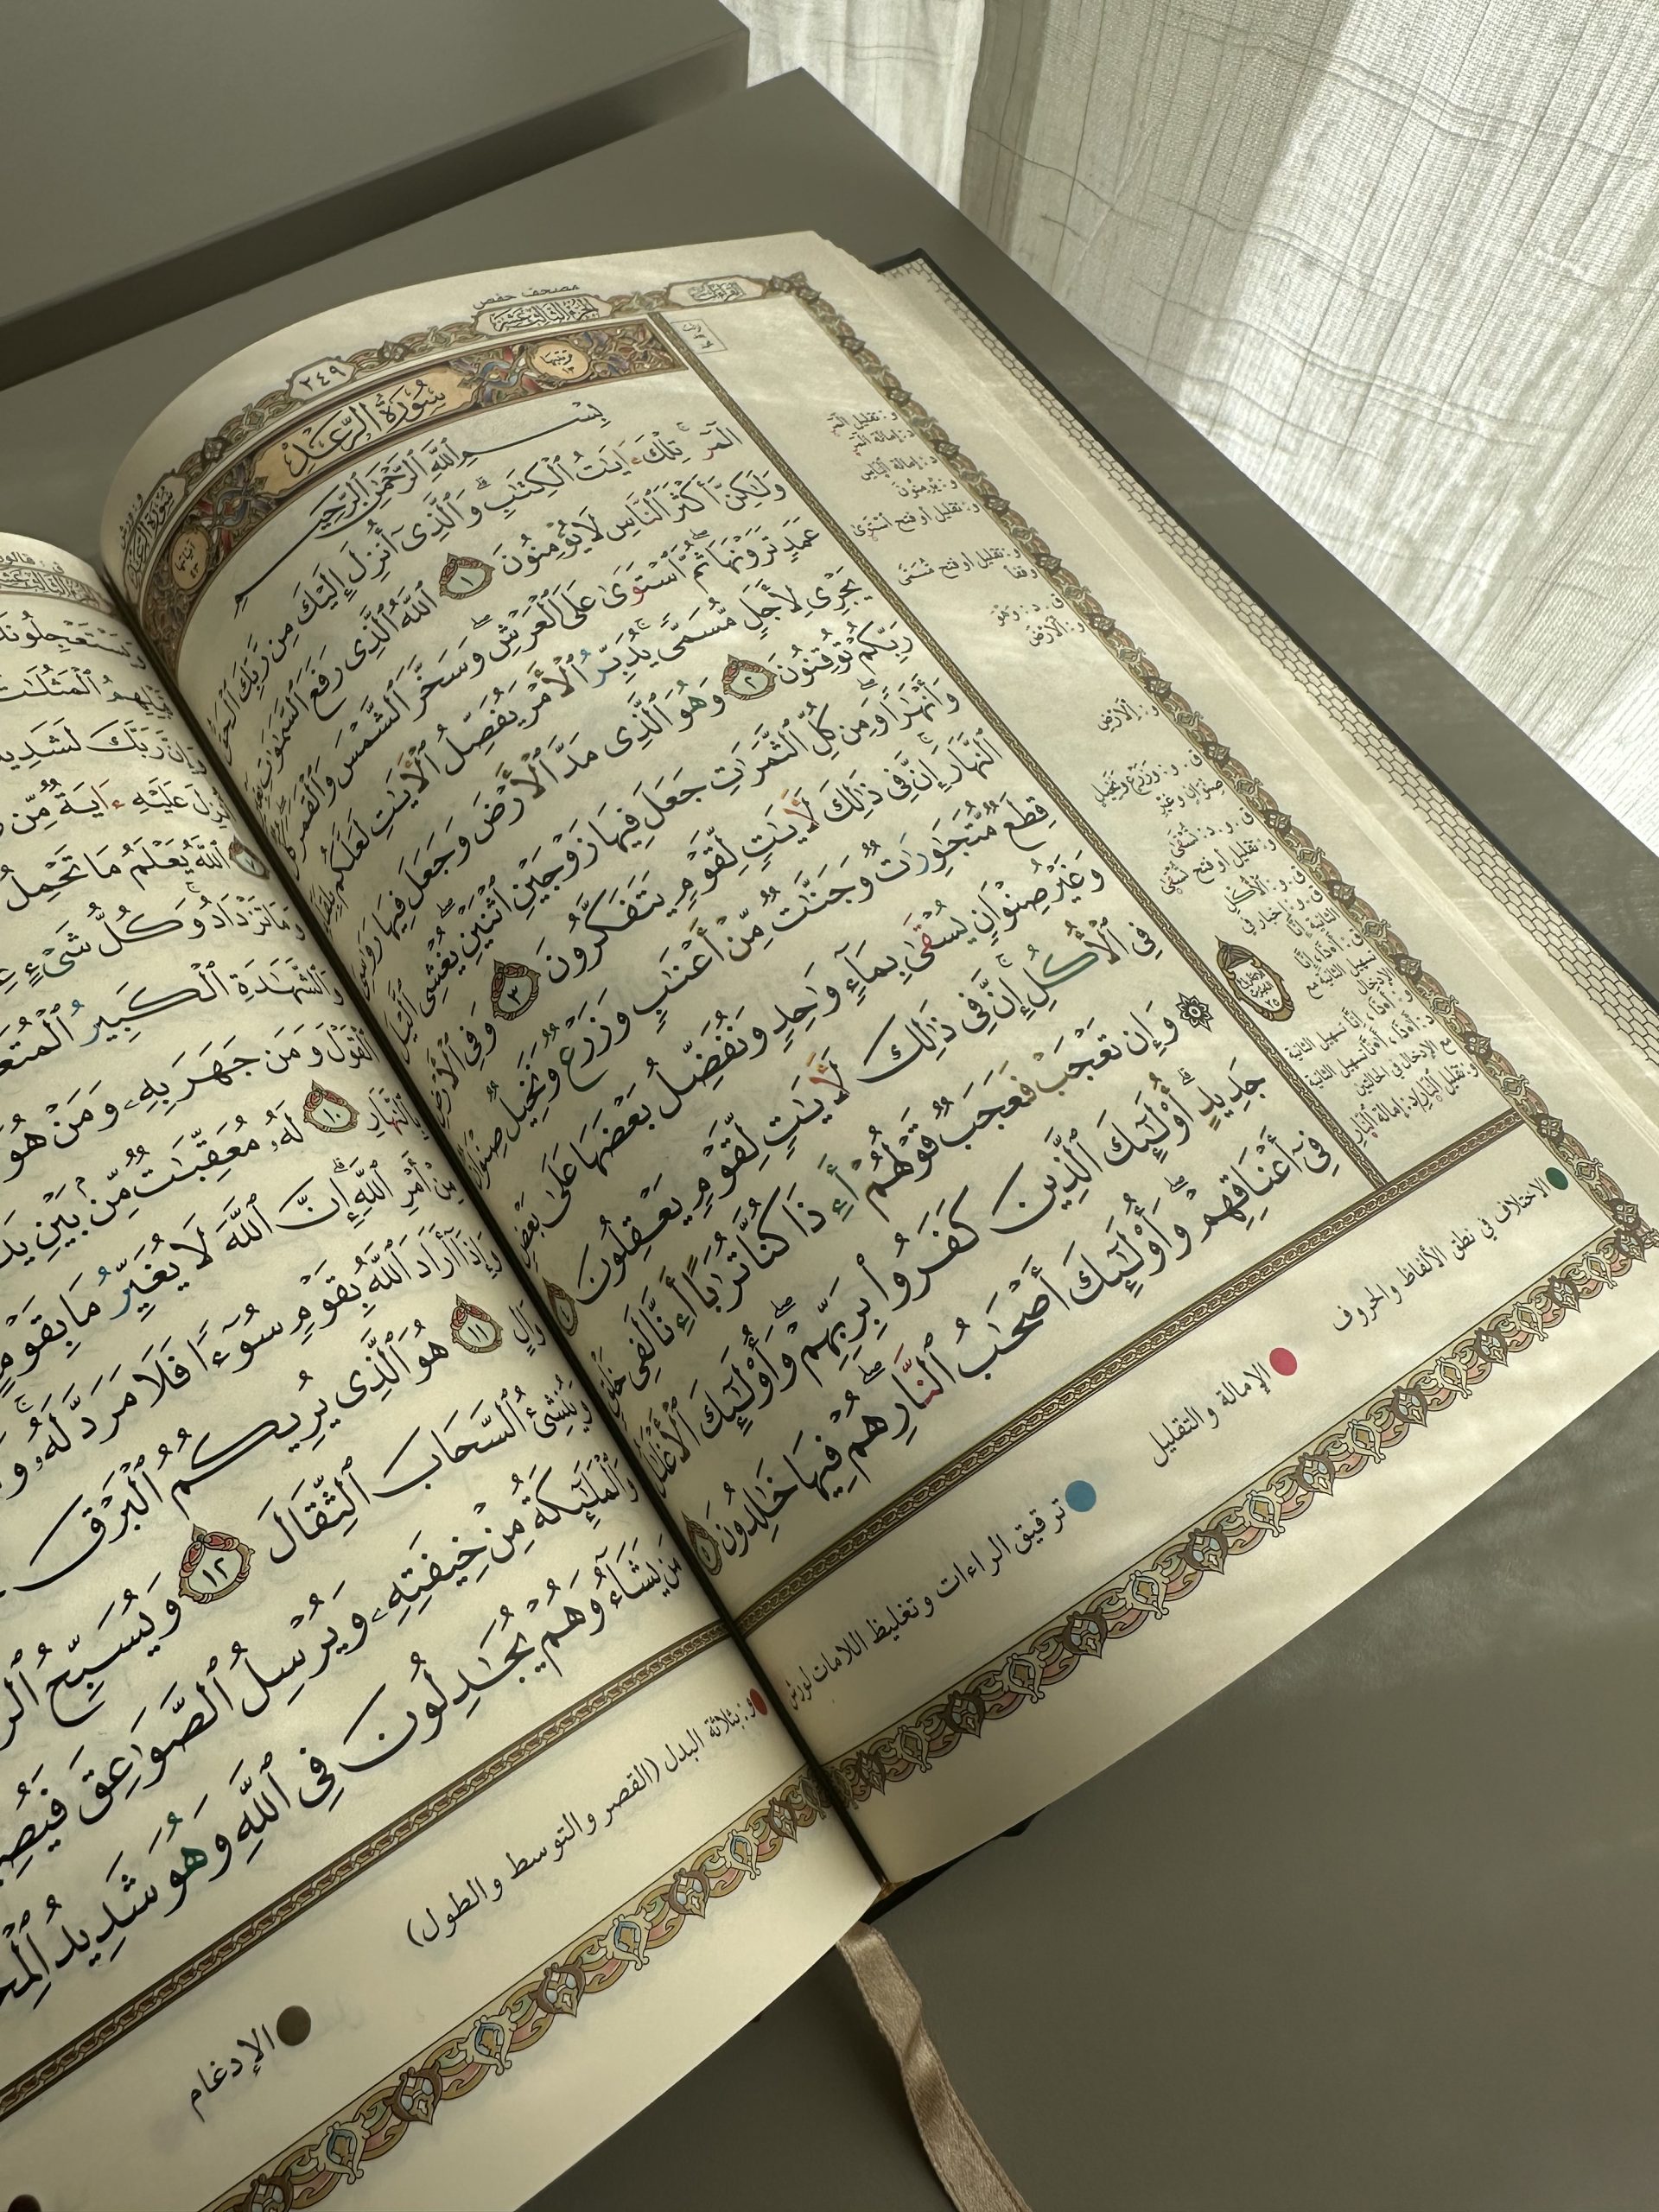 مصحف حفص
الجزء الثالث عشر
٢٤٩
سُورَةُ الرَّعْدِ
ترتيبها
١٣
سُورَةُ الرَّعْدِ
آياتها
٤٣
بِسْمِ ٱللَّهِ ٱلرَّحْمَٰنِ ٱلرَّحِيمِ
الٓمٓر ۚ تِلْكَ ءَايَٰتُ ٱلْكِتَٰبِ ۗ وَٱلَّذِىٓ أُنزِلَ إِلَيْكَ مِن رَّبِّكَ ٱلْحَقُّ
وَلَٰكِنَّ أَكْثَرَ ٱلنَّاسِ لَا يُؤْمِنُونَ ١ ٱللَّهُ ٱلَّذِى رَفَعَ ٱلسَّمَٰوَٰتِ بِغَيْرِ
عَمَدٍ تَرَوْنَهَا ۖ ثُمَّ ٱسْتَوَىٰ عَلَى ٱلْعَرْشِ ۖ وَسَخَّرَ ٱلشَّمْسَ وَٱلْقَمَرَ ۖ كُلٌّ
يَجْرِى لِأَجَلٍ مُّسَمًّى ۚ يُدَبِّرُ ٱلْأَمْرَ يُفَصِّلُ ٱلْأٓيَٰتِ لَعَلَّكُم بِلِقَآءِ
رَبِّكُمْ تُوقِنُونَ ٢ وَهُوَ ٱلَّذِى مَدَّ ٱلْأَرْضَ وَجَعَلَ فِيهَا رَوَٰسِىَ
وَأَنْهَٰرًا ۖ وَمِن كُلِّ ٱلثَّمَرَٰتِ جَعَلَ فِيهَا زَوْجَيْنِ ٱثْنَيْنِ ۖ يُغْشِى ٱلَّيْلَ
ٱلنَّهَارَ ۚ إِنَّ فِى ذَٰلِكَ لَأٓيَٰتٍ لِّقَوْمٍ يَتَفَكَّرُونَ ٣ وَفِى ٱلْأَرْضِ
قِطَعٌ مُّتَجَٰوِرَٰتٌ وَجَنَّٰتٌ مِّنْ أَعْنَٰبٍ وَزَرْعٌ وَنَخِيلٌ صِنْوَانٌ
وَغَيْرُ صِنْوَانٍ يُسْقَىٰ بِمَآءٍ وَٰحِدٍ وَنُفَضِّلُ بَعْضَهَا عَلَىٰ بَعْضٍ
فِى ٱلْأُكُلِ ۚ إِنَّ فِى ذَٰلِكَ لَأٓيَٰتٍ لِّقَوْمٍ يَعْقِلُونَ ٤
۞ وَإِن تَعْجَبْ فَعَجَبٌ قَوْلُهُمْ أَءِذَا كُنَّا تُرَٰبًا أَءِنَّا لَفِى خَلْقٍ
جَدِيدٍ ۗ أُو۟لَٰٓئِكَ ٱلَّذِينَ كَفَرُوا۟ بِرَبِّهِمْ ۖ وَأُو۟لَٰٓئِكَ ٱلْأَغْلَٰلُ
فِىٓ أَعْنَاقِهِمْ ۖ وَأُو۟لَٰٓئِكَ أَصْحَٰبُ ٱلنَّارِ ۖ هُمْ فِيهَا خَٰلِدُونَ ٥
و: تقليل الٓمٓر
د: إمالة الٓمٓر
د: إمالة ٱلنَّاسِ
و: يُومِنُونَ
و: تقليل أو فتح ٱسْتَوَىٰ
و: تقليل أو فتح مُّسَمًّى
وقفاً
ق . د: وَهْوَ
و: ٱلَارْضَ
و: ٱلَارْضِ
ق . و: وَزَرْعٍ وَنَخِيلٍ
صِنْوَانٍ وَغَيْرِ
ق . و . د: تُسْقَىٰ
و: تقليل أو فتح تُسْقَىٰ
ق . و: ٱلْأُكْلِ
ق . و: إخبار في
الثانية إِنَّا
ق: أَءِذَا، إِنَّا
تسهيل الثانية مع
الإدخال
و: أَءِذَا، إِنَّا تسهيل الثانية
د: أَءِذَا، أَءِنَّا تسهيل الثانية
مع الإدخال في الحالتين
و: تقليل ٱلنَّارِ، د: إمالة ٱلنَّارِ
الاختلاف في نطق الألفاظ والحروف
الإمالة والتقليل
ترقيق الراءات وتغليظ اللامات لورش
وَيَسْتَعْجِلُونَكَ
قَبْلِهِمُ ٱلْمَثُلَٰتُ
وَإِنَّ رَبَّكَ لَشَدِيدُ
أُنزِلَ عَلَيْهِ ءَايَةٌ مِّن
ٱللَّهُ يَعْلَمُ مَا تَحْمِلُ
وَمَا تَزْدَادُ ۖ وَكُلُّ شَىْءٍ
وَٱلشَّهَٰدَةِ ٱلْكَبِيرُ ٱلْمُتَعَالِ
ٱلْقَوْلَ وَمَن جَهَرَ بِهِۦ وَمَنْ هُوَ
بِٱلنَّهَارِ ١٠ لَهُۥ مُعَقِّبَٰتٌ مِّنۢ بَيْنِ
مِنْ أَمْرِ ٱللَّهِ ۗ إِنَّ ٱللَّهَ لَا يُغَيِّرُ مَا بِقَوْمٍ
وَإِذَآ أَرَادَ ٱللَّهُ بِقَوْمٍ سُوٓءًا فَلَا مَرَدَّ لَهُۥ ۚ
وَالٍ ١١ هُوَ ٱلَّذِى يُرِيكُمُ ٱلْبَرْقَ
وَيُنشِئُ ٱلسَّحَابَ ٱلثِّقَالَ ١٢ وَيُسَبِّحُ
وَٱلْمَلَٰٓئِكَةُ مِنْ خِيفَتِهِۦ وَيُرْسِلُ ٱلصَّوَٰعِقَ
مَن يَشَآءُ وَهُمْ يُجَٰدِلُونَ فِى ٱللَّهِ وَهُوَ شَدِيدُ
و: ثلاثة البدل (القصر والتوسط والطول)
الإدغام